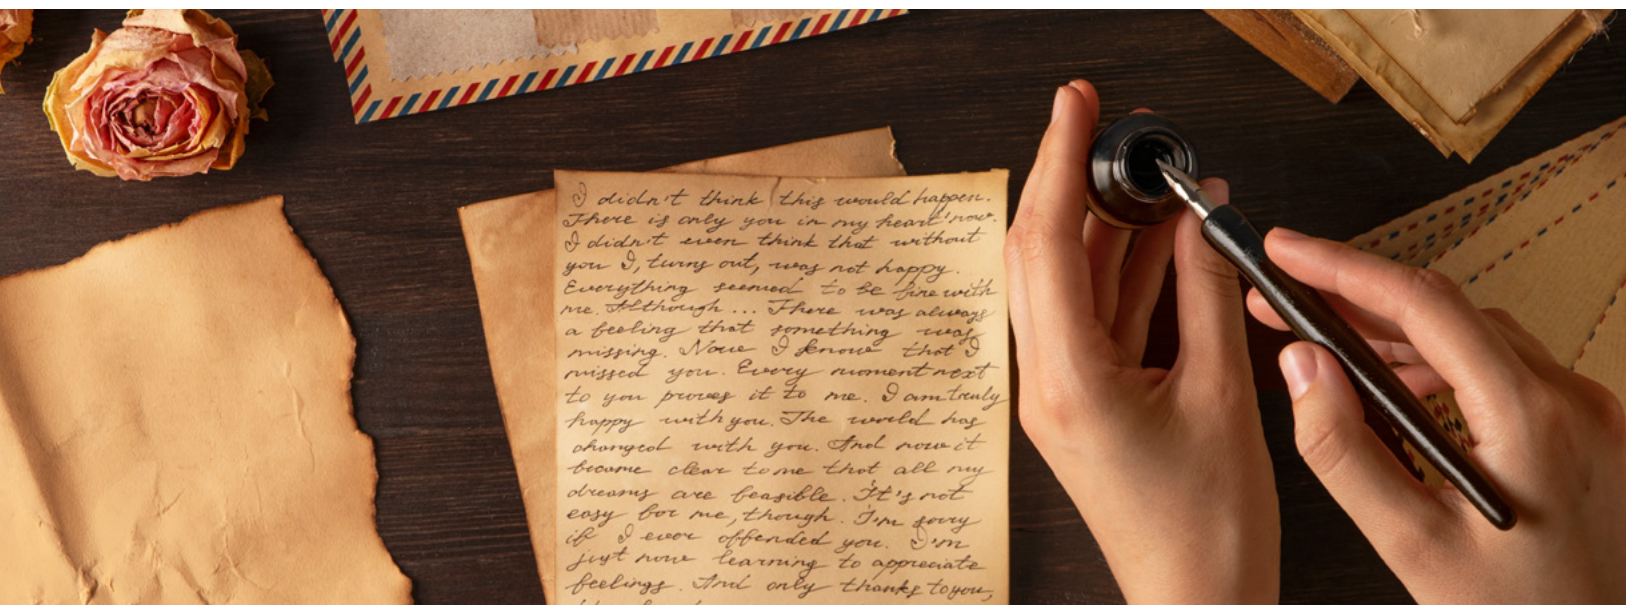 I didn't think this would happen.
There is only you in my heart now.
I didn't even think that without
you I, turns out, was not happy.
Everything seemed to be fine with
me. Although... There was always
a feeling that something was
missing. Now I know that I
missed you. Every moment next
to you proves it to me. I am truly
happy with you. The world has
changed with you. And now it
became clear to me that all my
dreams are feasible. It's not
easy for me, though. I'm sorry
if I ever offended you. I'm
just now learning to appreciate
feelings. And only thanks to you,